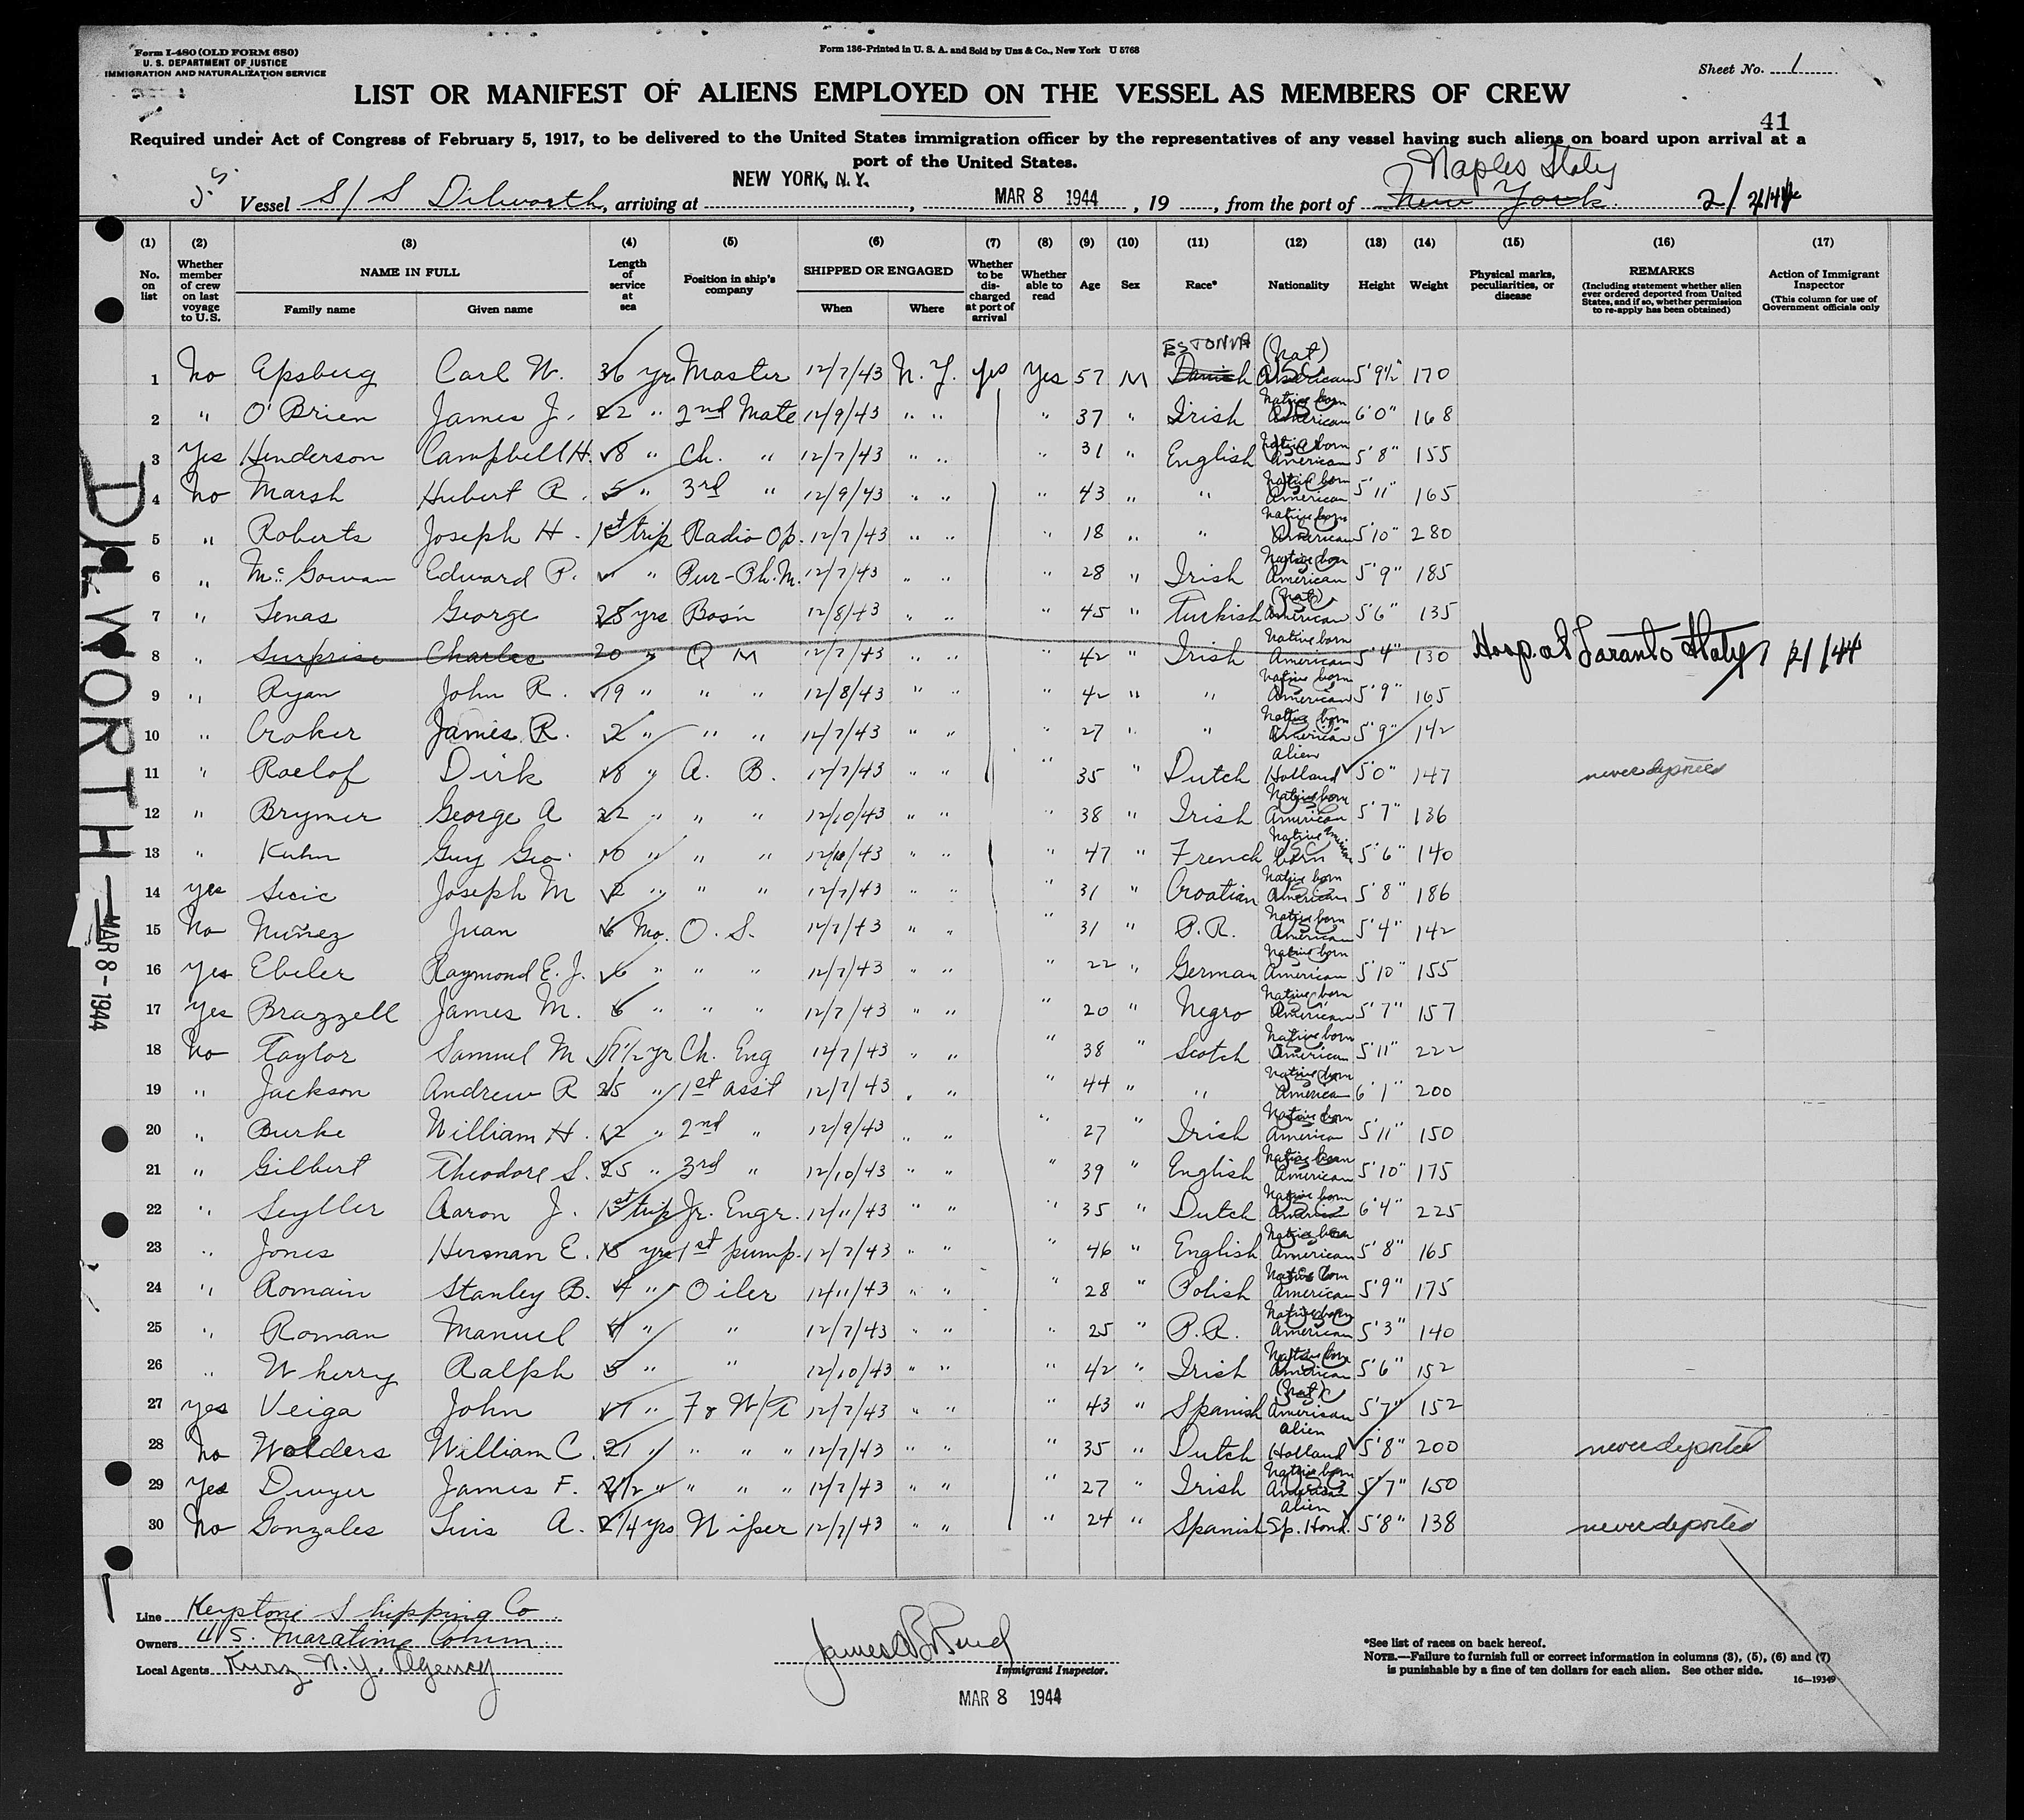 Form I-480 (OLD FORM 680)
U. S. DEPARTMENT OF JUSTICE
IMMIGRATION AND NATURALIZATION SERVICE
Form 136-Printed in U. S. A. and Sold by Unz & Co., New York U 5768
Sheet No. 1
LIST OR MANIFEST OF ALIENS EMPLOYED ON THE VESSEL AS MEMBERS OF CREW
41
Required under Act of Congress of February 5, 1917, to be delivered to the United States immigration officer by the representatives of any vessel having such aliens on board upon arrival at a
port of the United States.
Naples Italy
U.S. Vessel S/S Dilworth, arriving at NEW YORK, N.Y., MAR 8 1944, 19, from the port of New York
(1) (2) (3) (4) (5) (6) (7) (8) (9) (10) (11) (12) (13) (14) (15) (16) (17)
No. on list
Whether member of crew on last voyage to U.S.
NAME IN FULL
Family name Given name
Length of service at sea
Position in ship's company
SHIPPED OR ENGAGED
When Where
Whether to be discharged at port of arrival
Whether able to read
Age
Sex
Race*
Nationality
Height
Weight
Physical marks, peculiarities, or disease
REMARKS
(Including statement whether alien ever ordered deported from United States, and if so, whether permission to re-apply has been obtained)
Action of Immigrant Inspector
(This column for use of Government officials only
ESTONIA (Nat)
1 No Epsberg Carl W. 36 yr Master 12/7/43 N.Y. yes Yes 57 M Danish American 5' 9½" 170
2 " O'Brien James J. 22 " 2nd Mate 12/9/43 " " " 37 " Irish Native born American 6'0" 168
3 Yes Henderson Campbell H. 8 " Ch. " 12/7/43 " " " 31 " English Native born American 5'8" 155
4 No Marsh Hubert R. 5 " 3rd " 12/9/43 " " " 43 " " Native born American 5'11" 165
5 " Roberts Joseph H. 1st trip Radio Op. 12/7/43 " " " 18 " " Native born American 5'10" 280
6 " McGowan Edward P. " " Pur-Ph.M. 12/7/43 " " " 28 " Irish Native born American 5'9" 185
7 " George 28 yrs Bos'n 12/8/43 " " " 45 " Turkish (Nat) American 5'6" 135
8 " Surprise Charles 20 " Q M 12/7/43 " " " 42 " Irish Native born American 5'4" 130 Hosp. at Taranto Italy
9 " Ryan John R. 19 " " " 12/8/43 " " " 42 " " Native born American 5'9" 165
10 " Croker James R. 2 " " " 12/7/43 " " " 27 " " Native born American 5'9" 142
11 " Roelof Dirk 18 " A. B. 12/7/43 " " " 35 " Dutch Alien Holland 5'0" 147 never deported
12 " Brymer George A 22 " " " 12/10/43 " " " 38 " Irish Native born American 5'7" 136
13 " Kuhn Guy Geo. 10 " " " 12/10/43 " 47 " French Native born American 5'6" 140
14 yes Secic Joseph M 2 " " " 12/7/43 " " " 31 " Croatian Native born American 5'8" 186
15 No Nuñez Juan 6 Mo. O. S. 12/7/43 " " " 31 " P.R. Native born American 5'4" 142
16 Yes Ebeler Raymond E. J. 6 " " " 12/7/43 " " " 22 " German Native born American 5'10" 155
17 Yes Brazzell James M. 6 " " " 12/7/43 " " " 20 " Negro Native born American 5'7" 157
18 No Taylor Samuel M 17½ yr Ch. Eng 12/7/43 " " " 38 " Scotch Native born American 5'11" 222
19 " Jackson Andrew R 25 " 1st asst 12/7/43 " " " 44 " " Native born American 6'1" 200
20 " Burke William H. 12 " 2nd " 12/9/43 " " " 27 " Irish Native born American 5'11" 150
21 " Gilbert Theodore S. 25 " 3rd " 12/10/43 " " " 39 " English Native born American 5'10" 175
22 " Seyller Aaron J. 1st trip Jr. Engr. 12/11/43 " " " 35 " Dutch Native born American 6'4" 225
23 " Jones Herman E. 18 yrs 1st pump. 12/7/43 " " " 46 " English Native born American 5'8" 165
24 " Romain Stanley B. 4 " Oiler 12/11/43 " " " 28 " Polish Native born American 5'9" 175
25 " Roman Manuel 4 " " 12/7/43 " " " 25 " P.R. Native born American 5'3" 140
26 " Wherry Ralph 5 " " 12/10/43 " " " 42 " Irish Native born American 5'6" 152
27 yes Veiga John 17 " F & W/T 12/7/43 " " " 43 " Spanish (Nat) American 5'7" 152
28 No Wolders William C. 21 " " " " 12/7/43 " " " 35 " Dutch Alien Holland 5'8" 200 never deported
29 Yes Dwyer James F. 2½ " " " " 12/7/43 " " " 27 " Irish Native born American 5'7" 150
30 No Gonzales Luis A. 2¼ yrs Wiper 12/7/43 " " " 24 " Spanish Alien Sp. Hond. 5'8" 138 never deported
DILWORTH
MAR 8-1944
Line Keystone Shipping Co
Owners U S. Maratime Comm
Local Agents Kurz N.Y. Agency
Immigrant Inspector.
MAR 8 1944
*See list of races on back hereof.
NOTE.—Failure to furnish full or correct information in columns (3), (5), (6) and (7)
is punishable by a fine of ten dollars for each alien. See other side.
16—19349